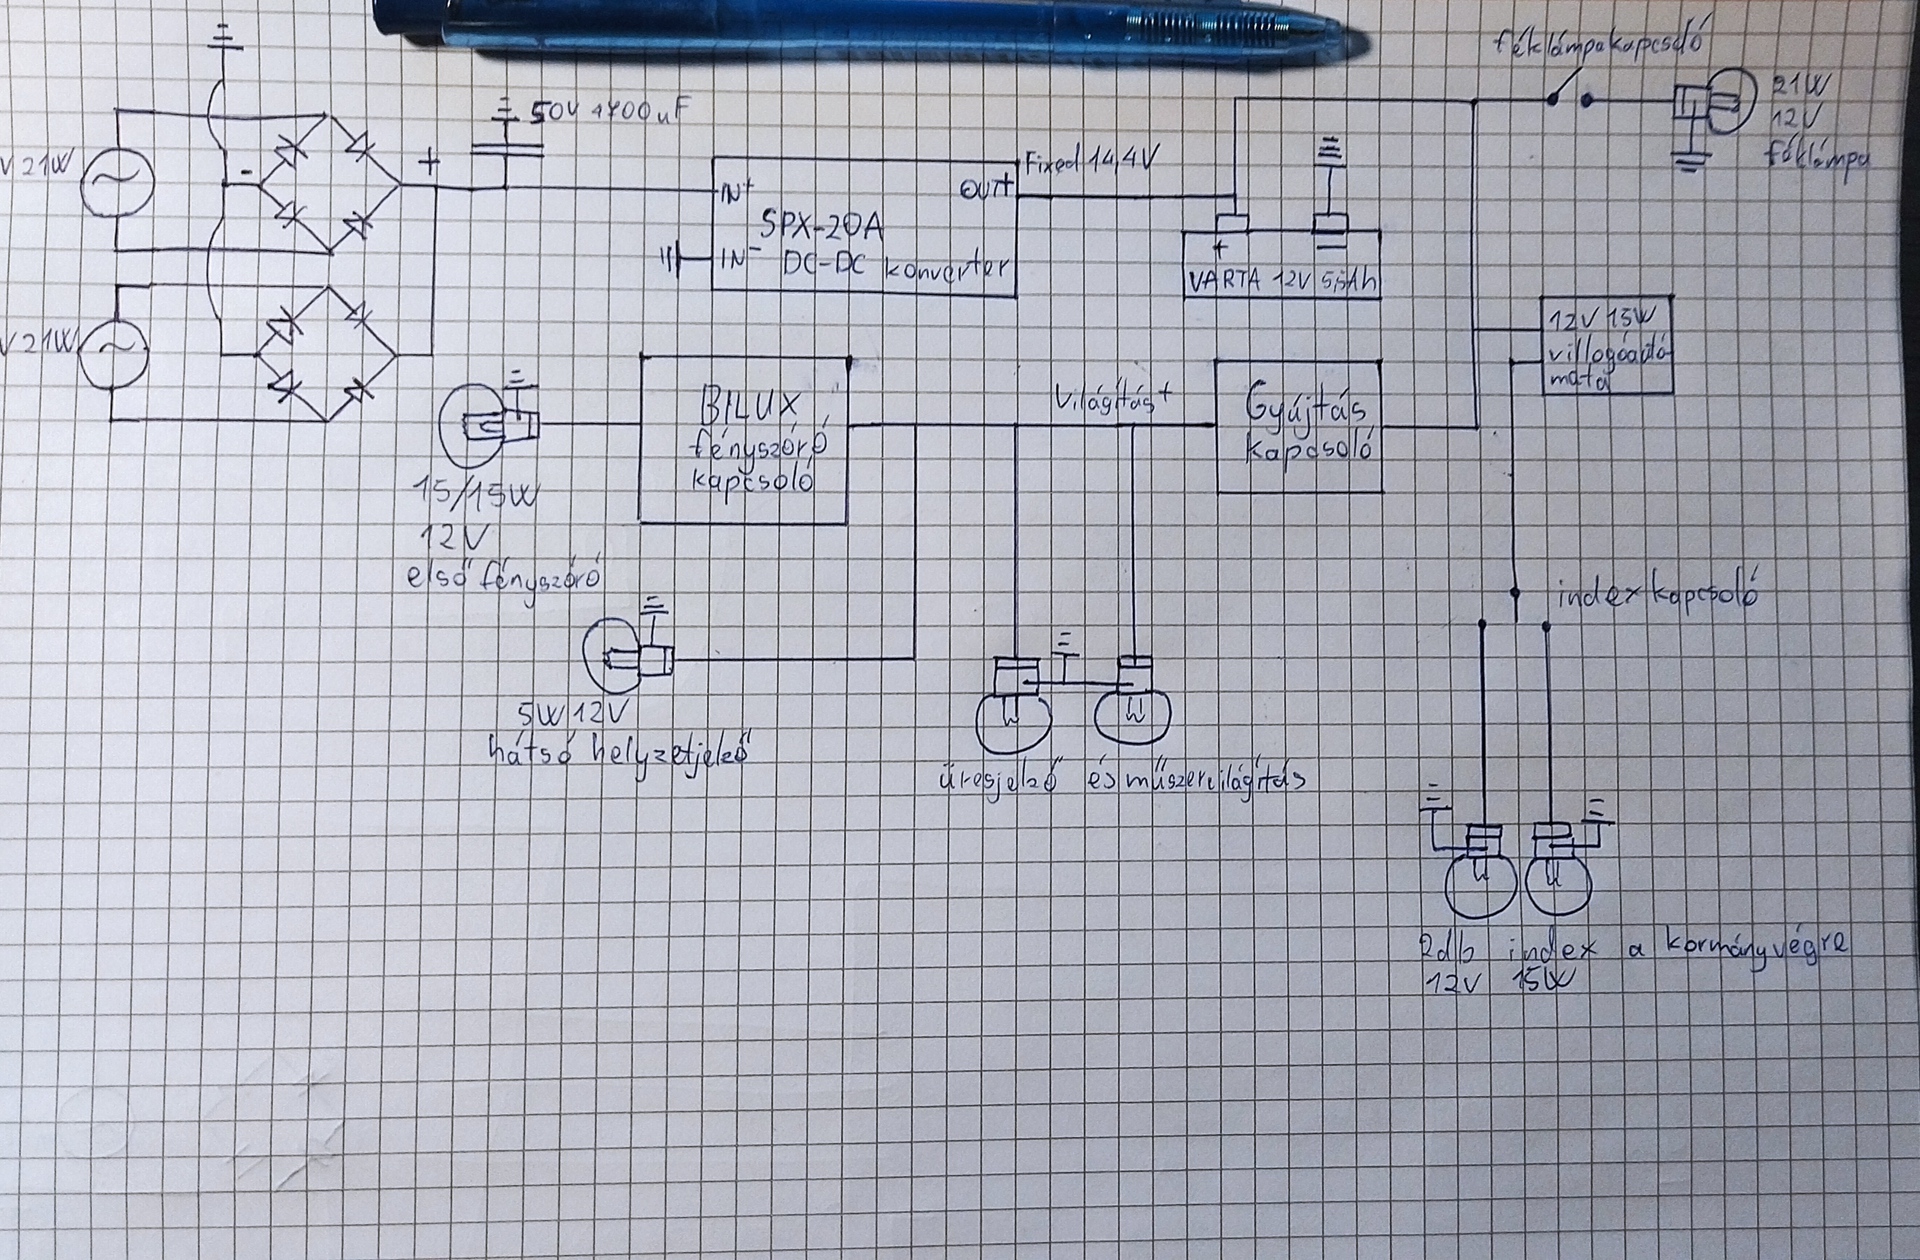 50V 4700uF
+
-
V 21W
V 21W
IN+
OUT+
SPX-20A
IN- DC-DC konverter
Fixed 14,4V
+
VARTA 12V 5,5Ah
féklámpakapcsoló
21W
12V
féklámpa
12V 15W
villogóauto
mata
BILUX
fényszóró
kapcsoló
Világítás+
Gyújtás
kapcsoló
15/15W
12V
első fényszóró
index kapcsoló
5W 12V
hátsó helyzetjelző
üresjelző és műszervilágítás
2db index a kormányvégre
12V 15W